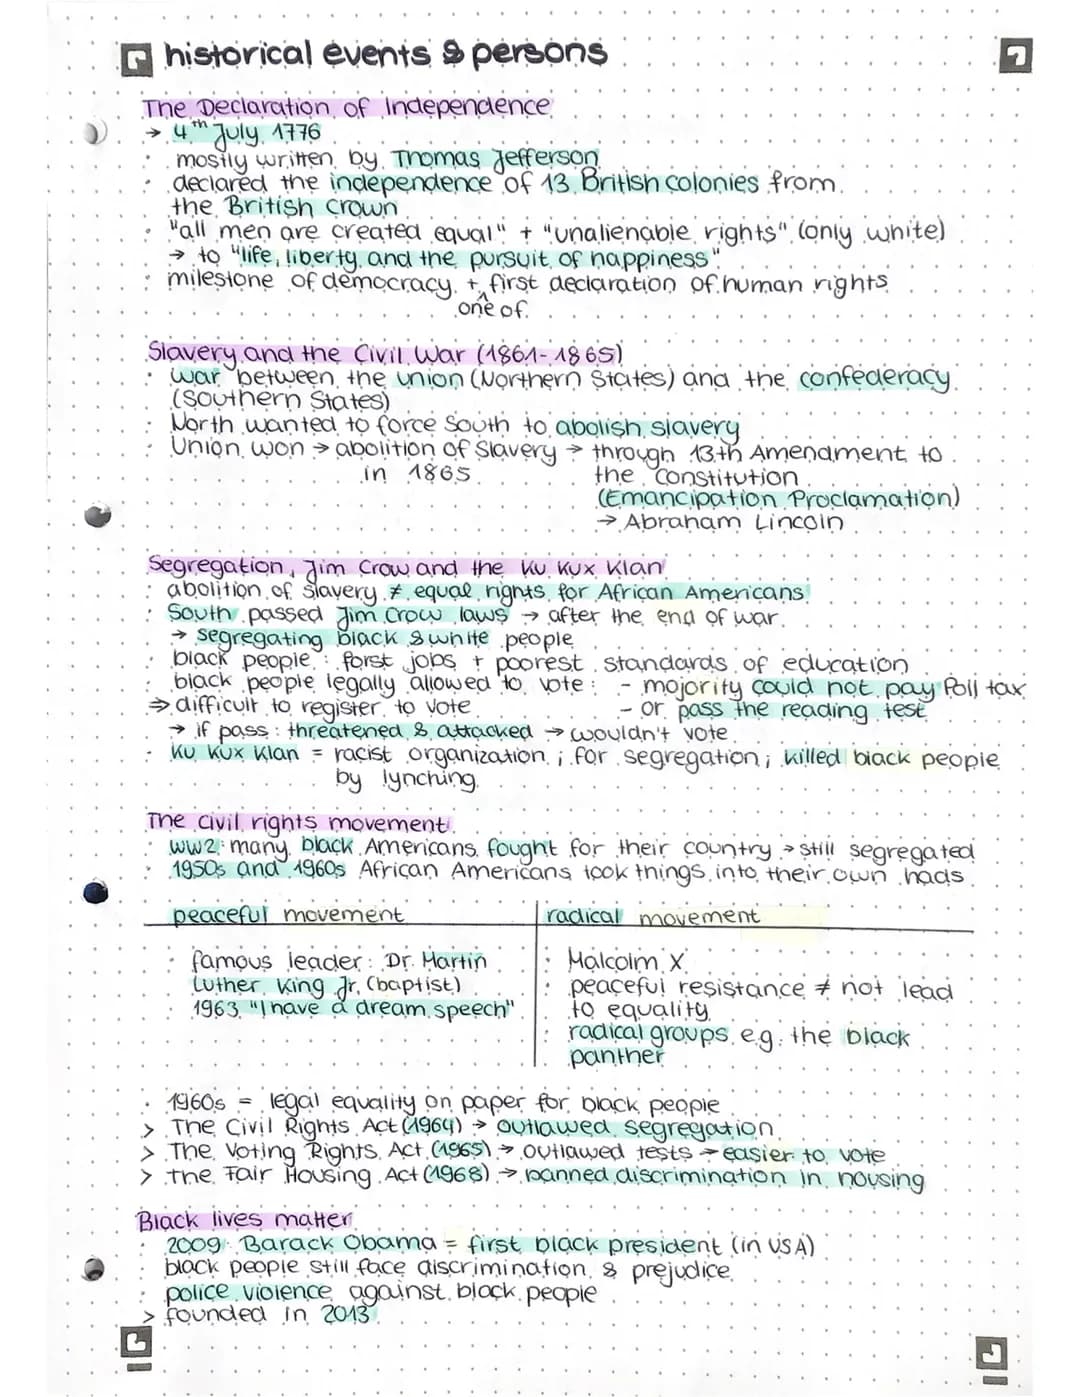 historical events & persons
The Declaration of Independence
→ 4th July 1776
· mostly written by Thomas Jefferson
· declared the independence of 13 British colonies from
the British crown
· "all men are created equal" + "unalienable rights" (only white)
→ to "life, liberty and the pursuit of happiness"
· milestone of democracy + first declaration of human rights
one of
Slavery and the Civil War (1861-1865)
· war between the union (Northern States) and the confederacy
(Southern States)
· North wanted to force South to abolish slavery
· Union won → abolition of Slavery → through 13th Amendment to
in 1865 the Constitution
(Emancipation Proclamation)
→ Abraham Lincoln
Segregation, Jim Crow and the Ku Kux Klan
· abolition of slavery ≠ equal rights for African Americans
· South passed Jim Crow laws → after the end of war
→ segregating black & white people
· black people: forst jobs + poorest standards of education
· black people legally allowed to vote: - majority could not pay Poll tax
⇒ difficult to register to vote - or pass the reading test
→ if pass: threatened & attacked → wouldn't vote
· Ku Kux Klan = racist organization; for segregation; killed black people
by lynching
The civil rights movement
· WW2: many black Americans fought for their country → still segregated
· 1950s and 1960s African Americans took things into their own hads
peaceful movement radical movement
· famous leader: Dr. Martin
Luther King Jr. (baptist)
· 1963 "I have a dream speech"
· Malcolm X
· peaceful resistance ≠ not lead
to equality
· radical groups e.g. the black
panther
· 1960s = legal equality on paper for black people
> The Civil Rights Act (1964) → outlawed segregation
> The Voting Rights Act (1965) → outlawed tests → easier to vote
> The Fair Housing Act (1968) → banned discrimination in housing
Black lives matter
· 2009: Barack Obama = first black president (in USA)
· black people still face discrimination & prejudice
· police violence against black people
> founded in 2013